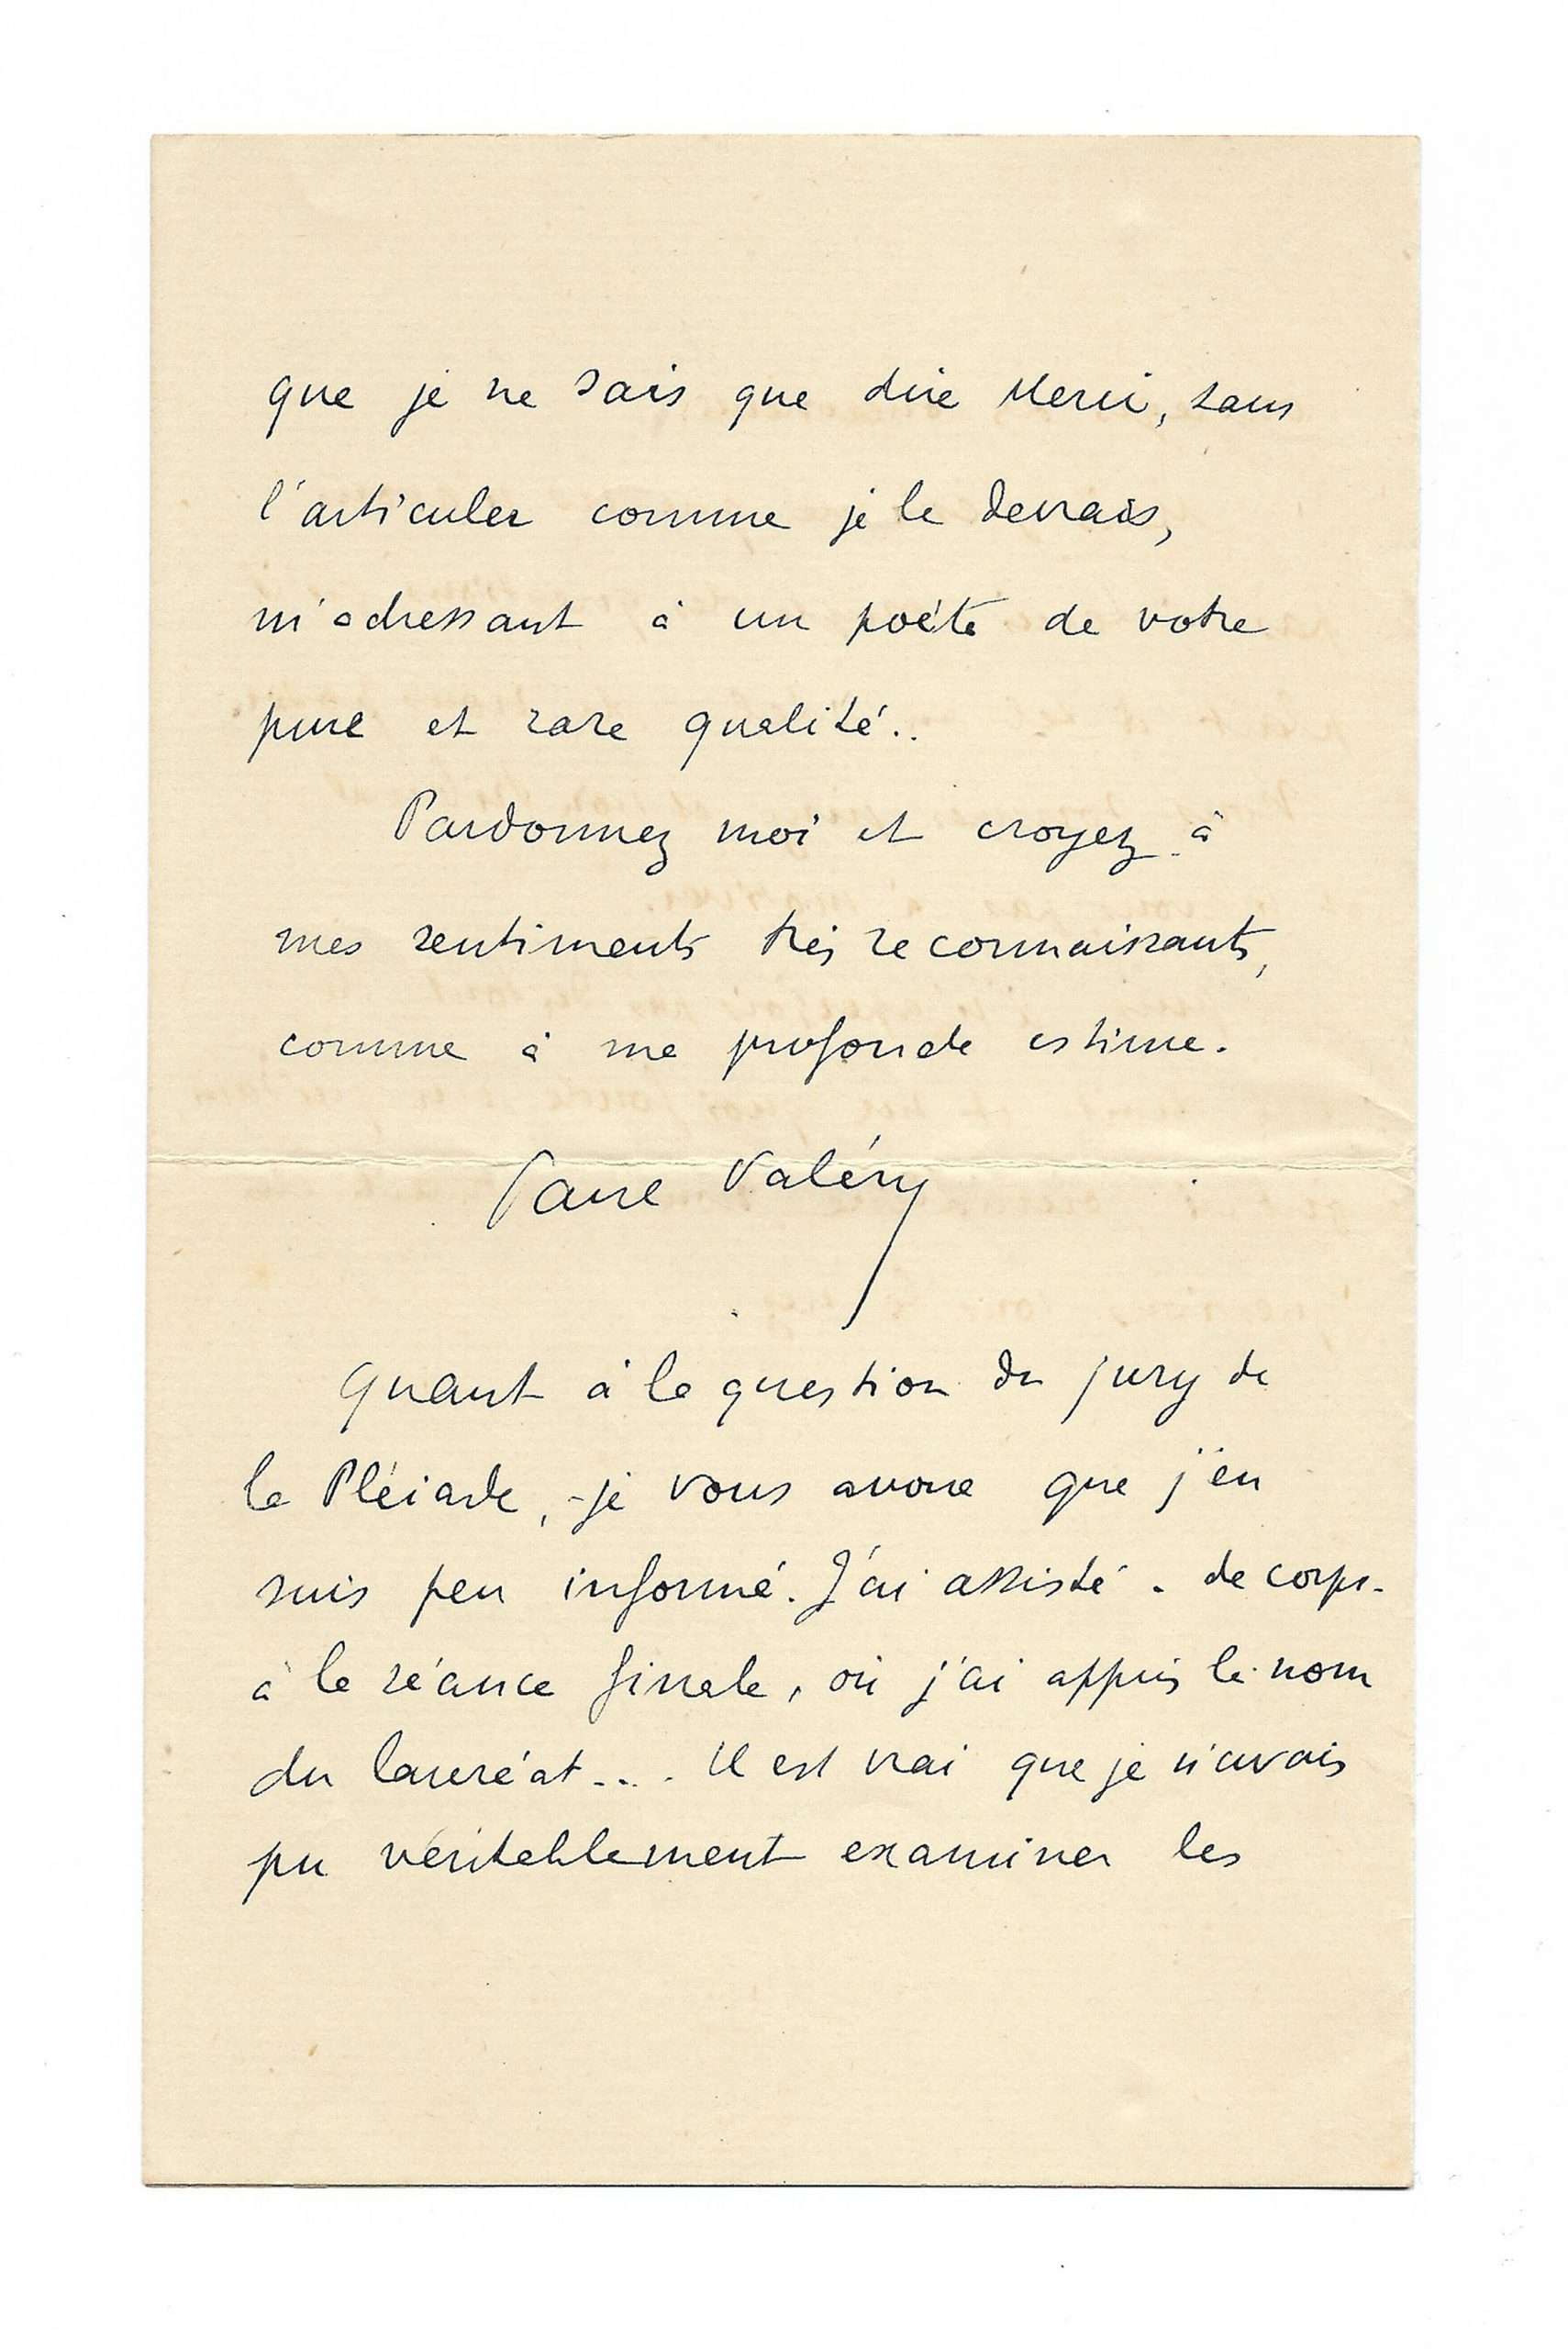 que je ne sais que dire Merci, sans
l'articuler comme je le devrais,
m'adressant à un poète de votre
pure et rare qualité..
Pardonnez moi et croyez à
mes sentiments très reconnaissants,
comme à ma profonde estime.
Paul Valéry
Quant à la question du jury de
la Pléiade, - je vous avoue que j'en
suis peu informé. J'ai assisté - de corps -
à la séance finale, où j'ai appris le nom
du lauréat.... Il est vrai que je n'avais
pu véritablement examiner les